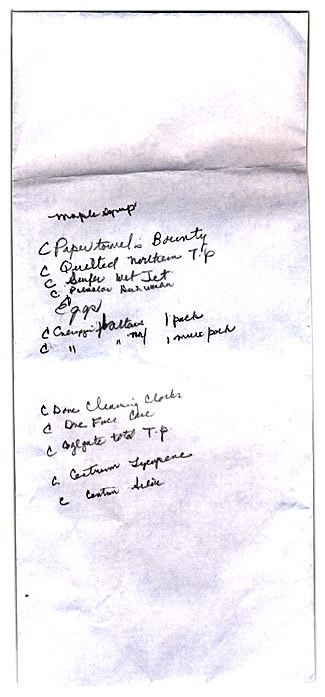 maple syrup
C Paper towels Bounty
C Quilted Northern T.P
C Swifer Wet Jet
C
Eggs
C Energizer 1 pack
C " " 1 more pack
C Dove Cleaning Cloths
C Dove Face Care
C Colgate total T.P.
C Centrum Lycopene
C Centrum Silver